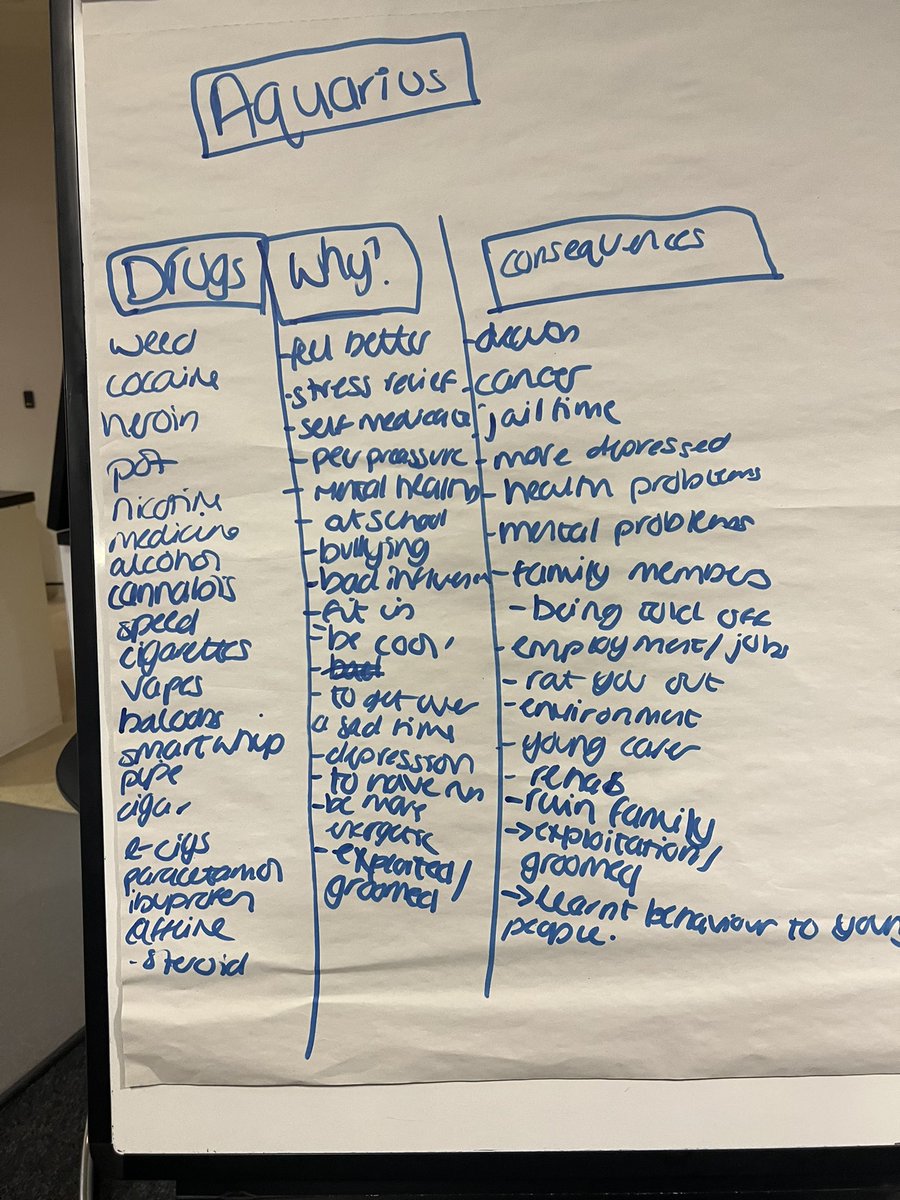 Aquarius
Drugs
weed
cocaine
heroin
pot
nicotine
medicine
alcohol
cannabis
speed
cigarettes
vapes
baloons
smart whip
pipe
cigar
e-cigs
paracetamol
ibuprofen
caffeine
- steroid
Why?
- feel better
- stress relief
- self medicate
- peer pressure
- mental health
- at school
- bullying
- bad influence
- fit in
- be cool
- bad
- to get over
a sad time
- depression
- to have fun
- be more
energetic
- exploited/
groomed
consequences
- death
- cancer
- jail time
- more depressed
- health problems
- mental problems
- family members
- being told off
- employment/jobs
- rat you out
- environment
- young carer
- rehab
- ruin family
→ exploitation/
groomed
→ Learnt behaviour to young
people.